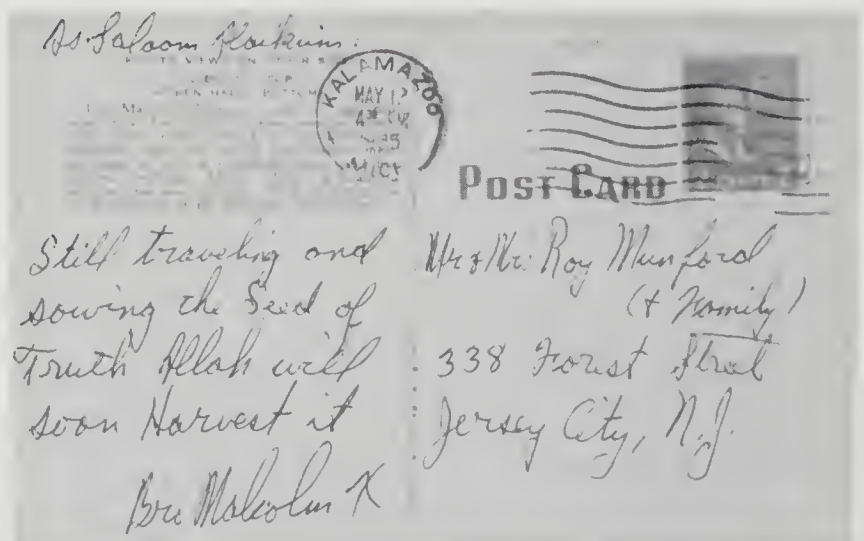 As-Salaam Alaikum:
KALAMAZOO
MAY
MICH
POST CARD
Still traveling and
sowing the Seed of
Truth Allah will
soon Harvest it
Bro Malcolm X
Mr & Mr. Roy Munford
(+ Family)
338 Forest Street
Jersey City, N.J.